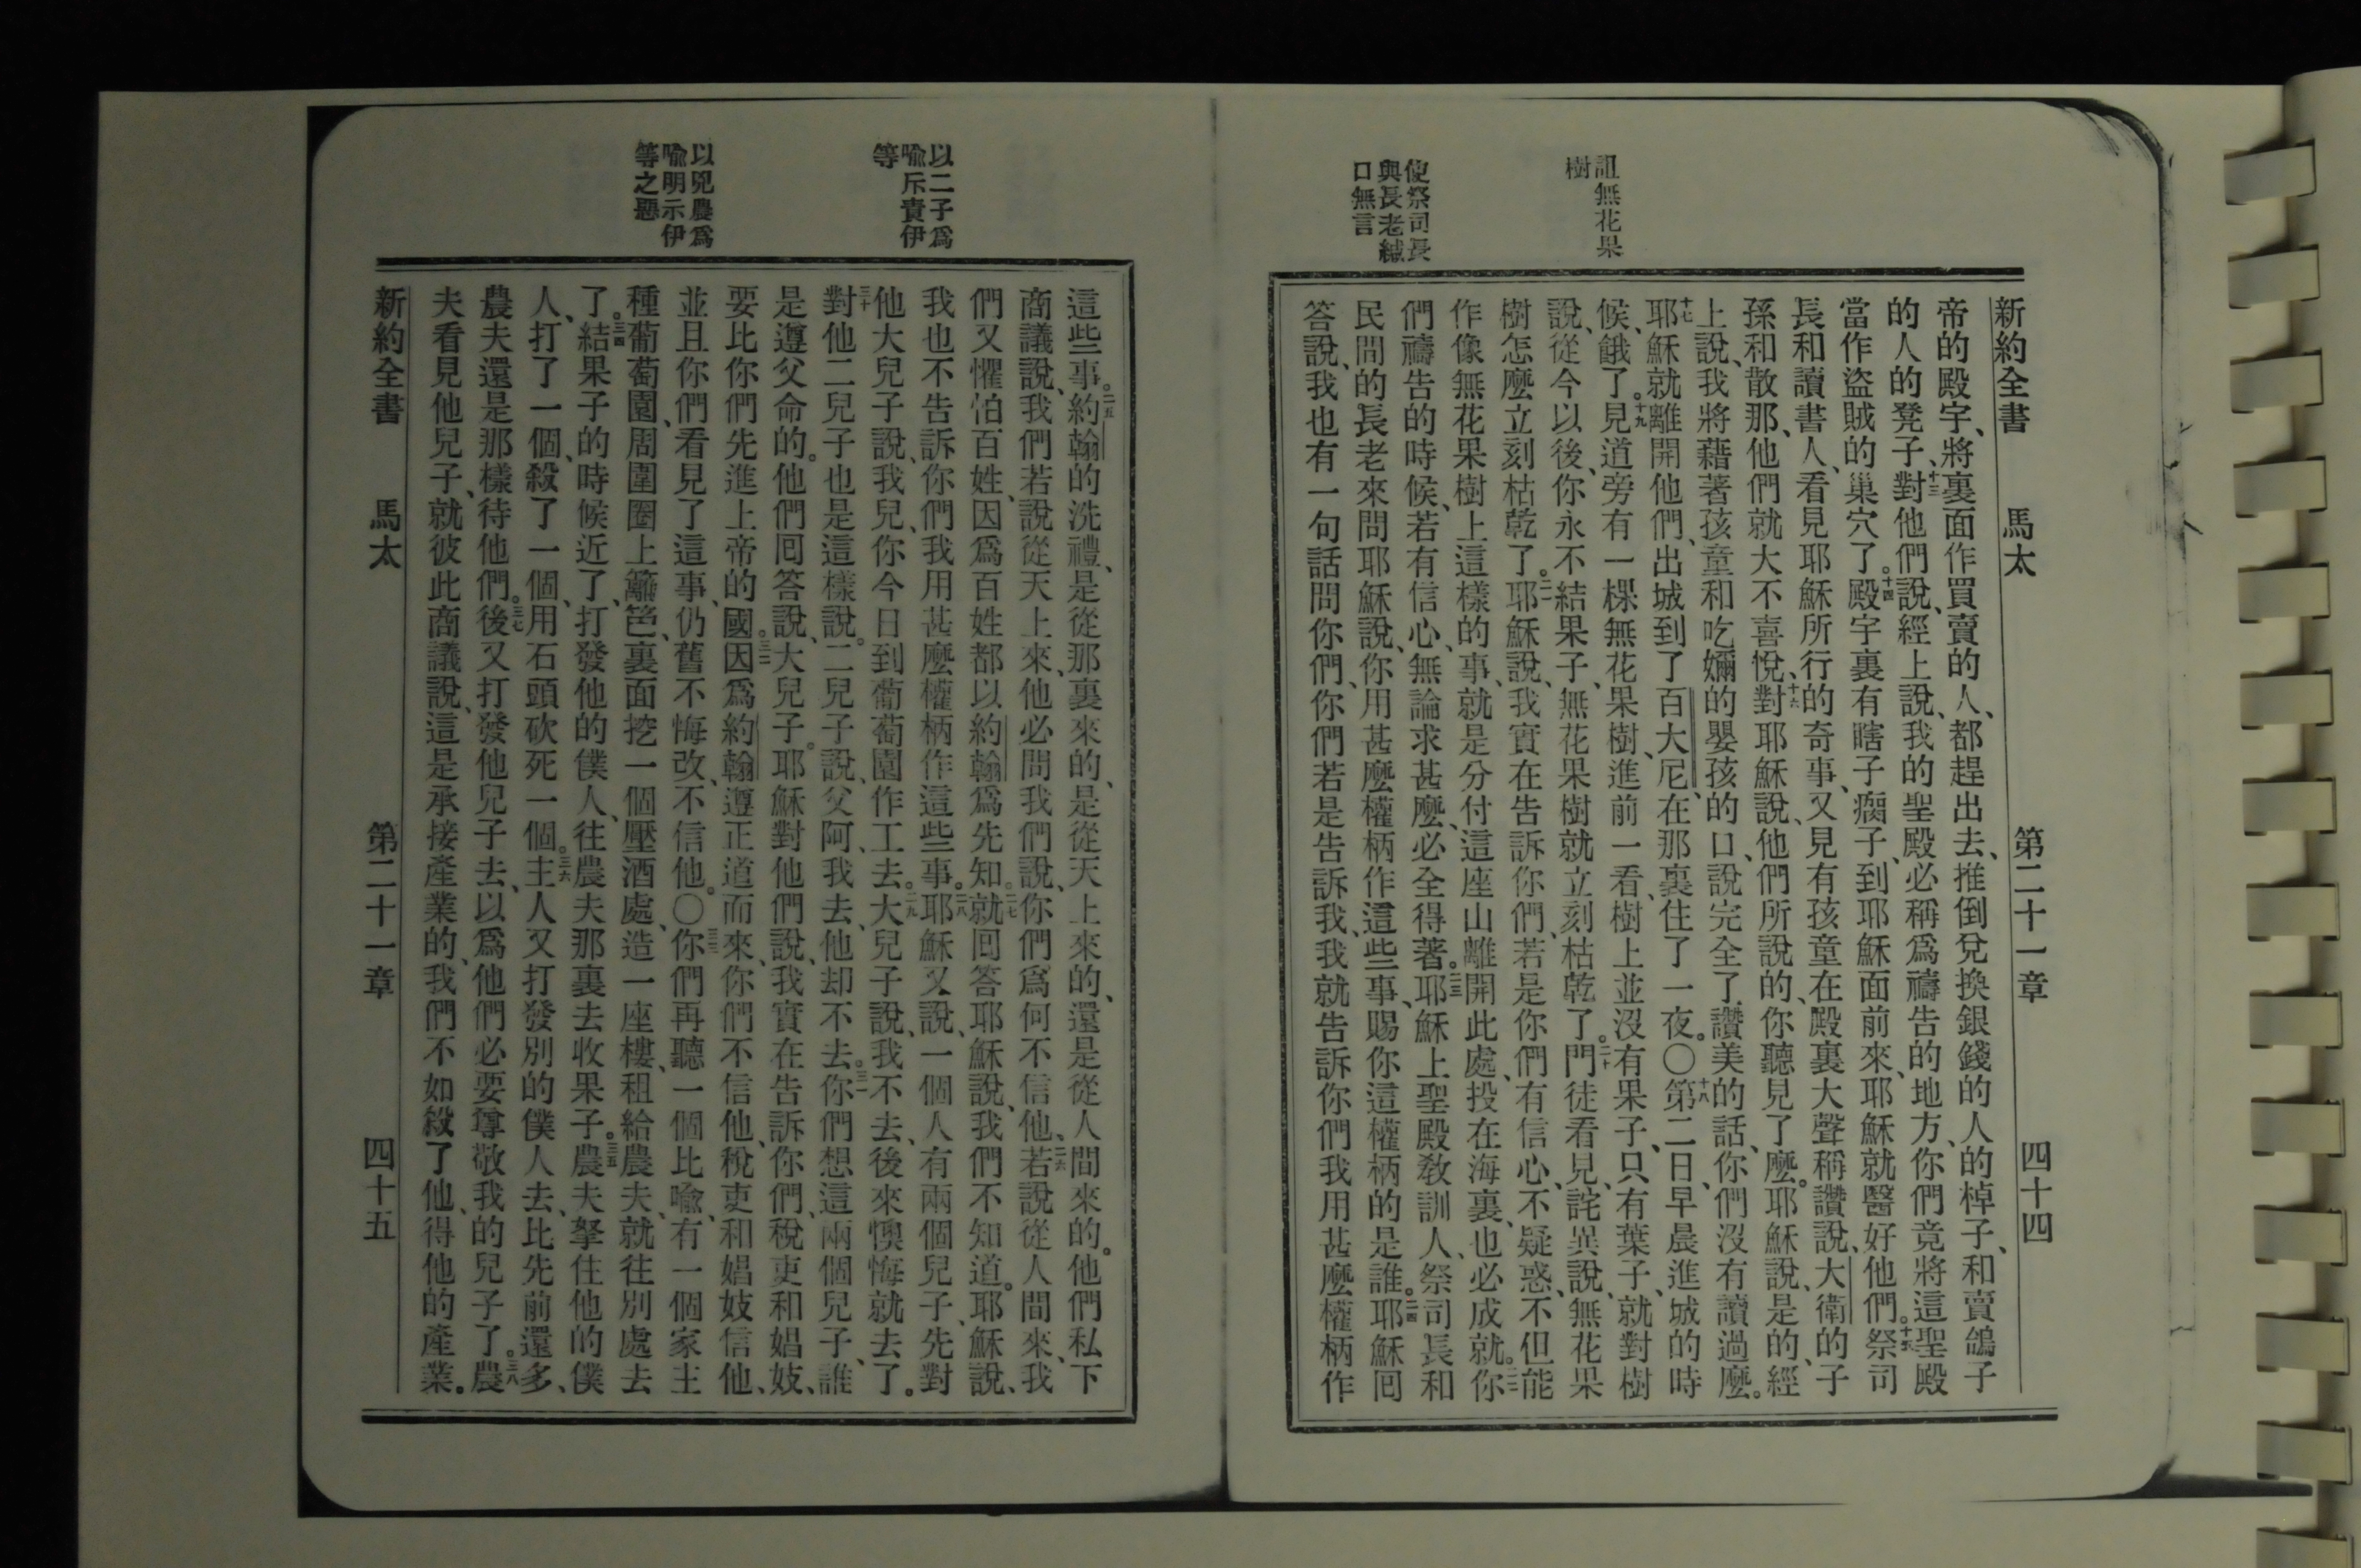 新約全書　馬太　第二十一章　四十四
詛無花果
樹
使祭司長
與長老緘
口無言
帝的殿宇、將裏面作買賣的人、都趕出去、推倒兌換銀錢的人的棹子、和賣鴿子
的人的凳子、十三對他們說、經上說、我的聖殿必稱爲禱告的地方、你們竟將這聖殿
當作盜賊的巢穴了。十四殿宇裏有瞎子瘸子、到耶穌面前來、耶穌就醫好他們。十五祭司
長和讀書人、看見耶穌所行的奇事、又見有孩童在殿裏大聲稱讚說、大衛的子
孫和散那、他們就大不喜悅、十六對耶穌說、他們所說的、你聽見了麼。耶穌說、是的、經
上說、我將藉著孩童和吃嬭的嬰孩的口、說完全了讚美的話、你們沒有讀過麼。
十七耶穌就離開他們、出城到了百大尼、在那裏住了一夜。〇十八第二日早晨進城的時
候、餓了。十九見道旁有一棵無花果樹、進前一看、樹上並沒有果子、只有葉子、就對樹
說、從今以後、你永不結果子、無花果樹就立刻枯乾了。二十門徒看見、詫異說、無花果
樹怎麼立刻枯乾了。二一耶穌說、我實在告訴你們、若是你們有信心、不疑惑、不但能
作像無花果樹上這樣的事、就是分付這座山離開此處、投在海裏、也必成就。二二你
們禱告的時候、若有信心、無論求甚麼、必全得著。二三耶穌上聖殿教訓人、祭司長和
民間的長老來問耶穌說、你用甚麼權柄作這些事、賜你這權柄的是誰。二四耶穌回
答說、我也有一句話問你們、你們若是告訴我、我就告訴你們我用甚麼權柄作
以二子爲
喩斥責伊
等
以兇農爲
喩明示伊
等之惡
這些事。二五約翰的洗禮、是從那裏來的、是從天上來的、還是從人間來的。他們私下
商議說、我們若說從天上來、他必問我們說、你們爲何不信他、二六若說從人間來、我
們又懼怕百姓、因爲百姓都以約翰爲先知。二七就回答耶穌說、我們不知道。耶穌說、
我也不告訴你們我用甚麼權柄作這些事。二八耶穌又說、一個人有兩個兒子、先對
他大兒子說、我兒、你今日到葡萄園作工去。二九大兒子說、我不去、後來懊悔就去了。
三十對他二兒子也是這樣說。二兒子說、父阿、我去、他却不去。三一你們想這兩個兒子、誰
是遵父命的。他們回答說、大兒子。耶穌對他們說、我實在告訴你們、稅吏和娼妓、
要比你們先進上帝的國。三二因爲約翰遵正道而來、你們不信他、稅吏和娼妓信他、
並且你們看見了這事、仍舊不悔改、不信他。〇三三你們再聽一個比喩、有一個家主
種葡萄園、周圍圈上籬笆、裏面挖一個壓酒處、造一座樓、租給農夫、就往別處去
了。三四結果子的時候近了、打發他的僕人、往農夫那裏去收果子。三五農夫拏住他的僕
人、打了一個、殺了一個、用石頭砍死一個。三六主人又打發別的僕人去、比先前還多、
農夫還是那樣待他們。三七後又打發他兒子去、以爲他們必要尊敬我的兒子了。三八農
夫看見他兒子、就彼此商議說、這是承接產業的、我們不如殺了他、得他的產業。
新約全書　馬太　第二十一章　四十五